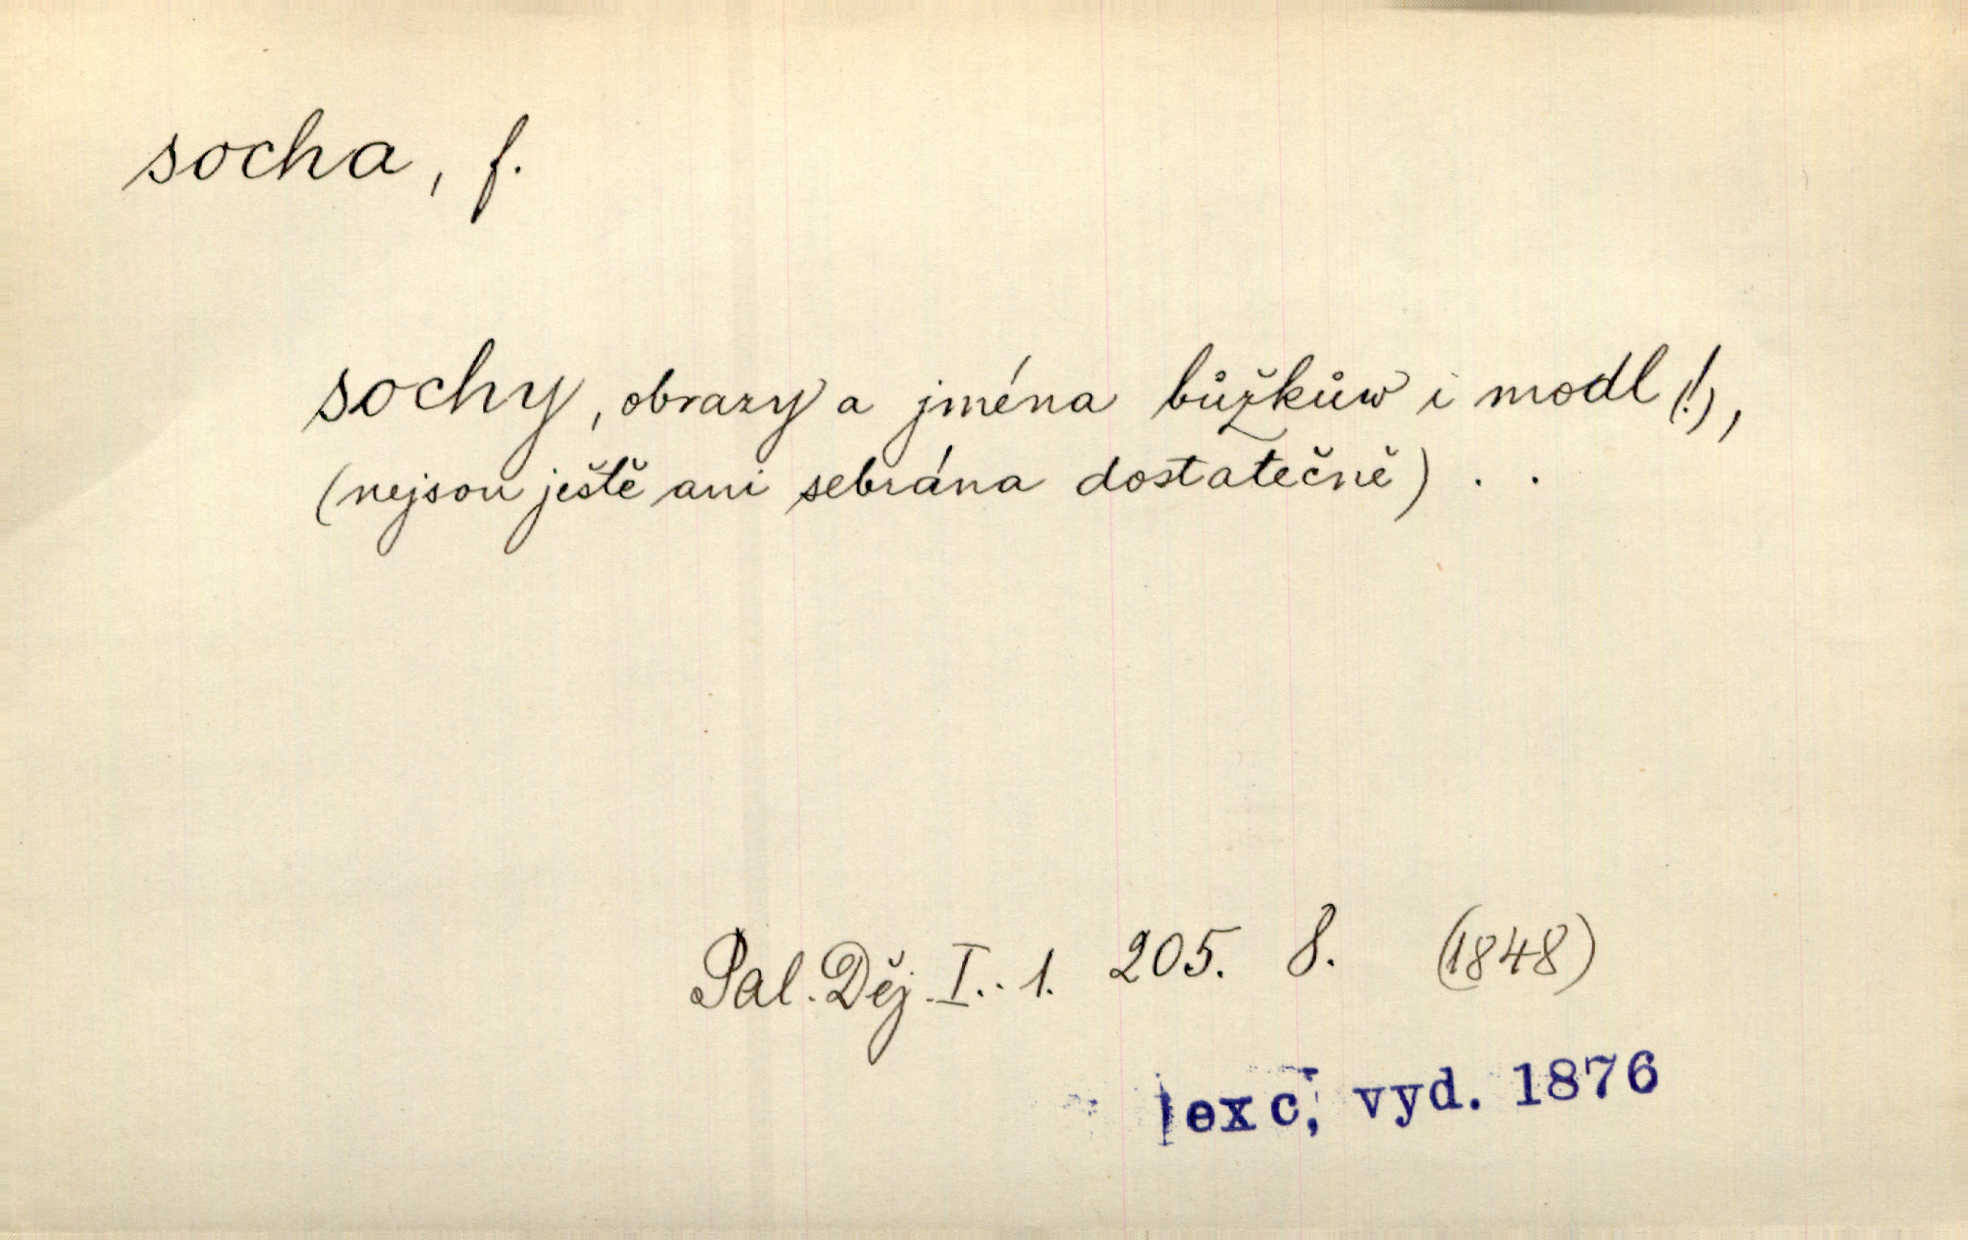 socha, f.
sochy, obrazy a jména bůžkůw i modl (!),
(nejsou ještě ani sebrána dostatečně) . .
Pal. Děj. I.. 1. 205. 8. (1848)
exc, vyd. 1876